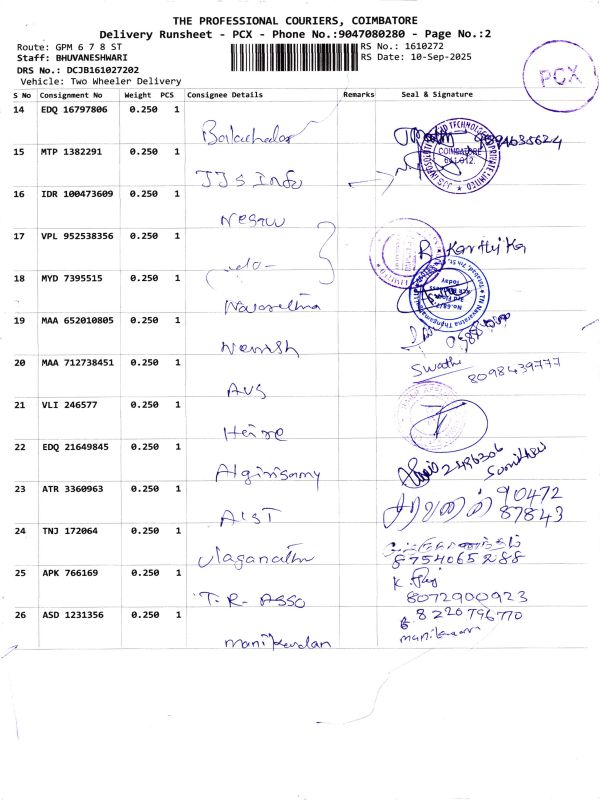 THE PROFESSIONAL COURIERS, COIMBATORE
Delivery Runsheet - PCX - Phone No.:9047080280 - Page No.:2
Route: GPM 6 7 8 ST
RS No.: 1610272
Staff: BHUVANESHWARI
RS Date: 10-Sep-2025
DRS No.: DCJB161027202
Vehicle: Two Wheeler Delivery
PCX
S No Consignment No Weight PCS Consignee Details Remarks Seal & Signature
14 EDQ 16797806 0.250 1
Balachandar
15 MTP 1382291 0.250 1
JJS Info
COIMBATORE
641 012.
16 IDR 100473609 0.250 1
17 VPL 952538356 0.250 1
-do-
R. Karthika
18 MYD 7395515 0.250 1
Navarathna
19 MAA 652010805 0.250 1
20 MAA 712738451 0.250 1
AVS
Swathi
8098439777
21 VLI 246577 0.250 1
22 EDQ 21649845 0.250 1
Alginisamy
2496306
23 ATR 3360963 0.250 1
AIST
90472
87843
24 TNJ 172064 0.250 1
8754065288
25 APK 766169 0.250 1
T.R. ASSO
8072900923
26 ASD 1231356 0.250 1
manikandan
8220796770